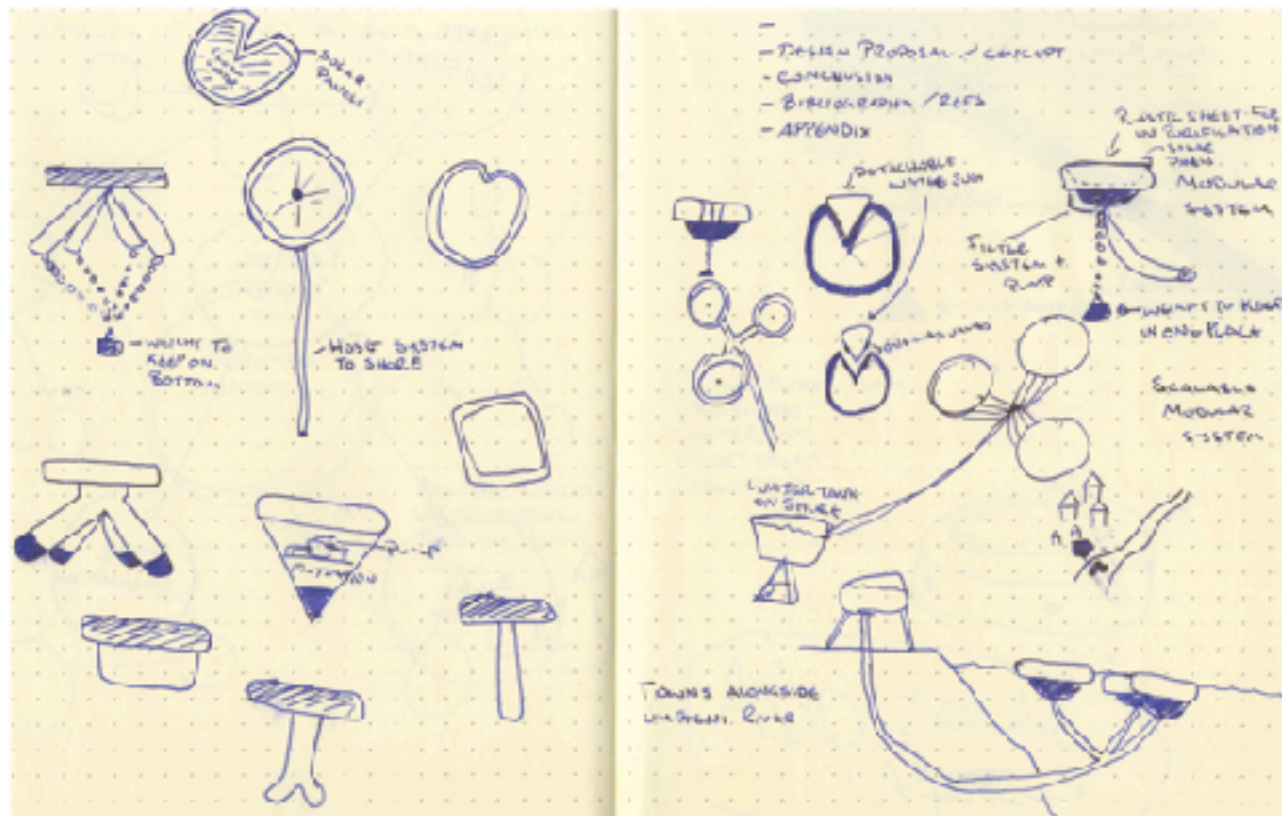 SOLAR
PANELS
- WEIGHT TO
KEEP ON
BOTTOM
- HOSE SYSTEM
TO SHORE
PUMP
-
- DESIGN PROPOSAL / CONCEPT
- CONCLUSION
- BIBLIOGRAPHY / REFS
- APPENDIX
DETACHABLE
SHEET FOR
UV PURIFICATION
SOLAR
MODULAR
SYSTEM
FILTER
SYSTEM +
PUMP
WEIGHT TO KEEP
IN ONE PLACE
SCALABLE
MODULAR
SYSTEM
WATER TANK
ON SHORE
TOWNS ALONGSIDE
RIVER